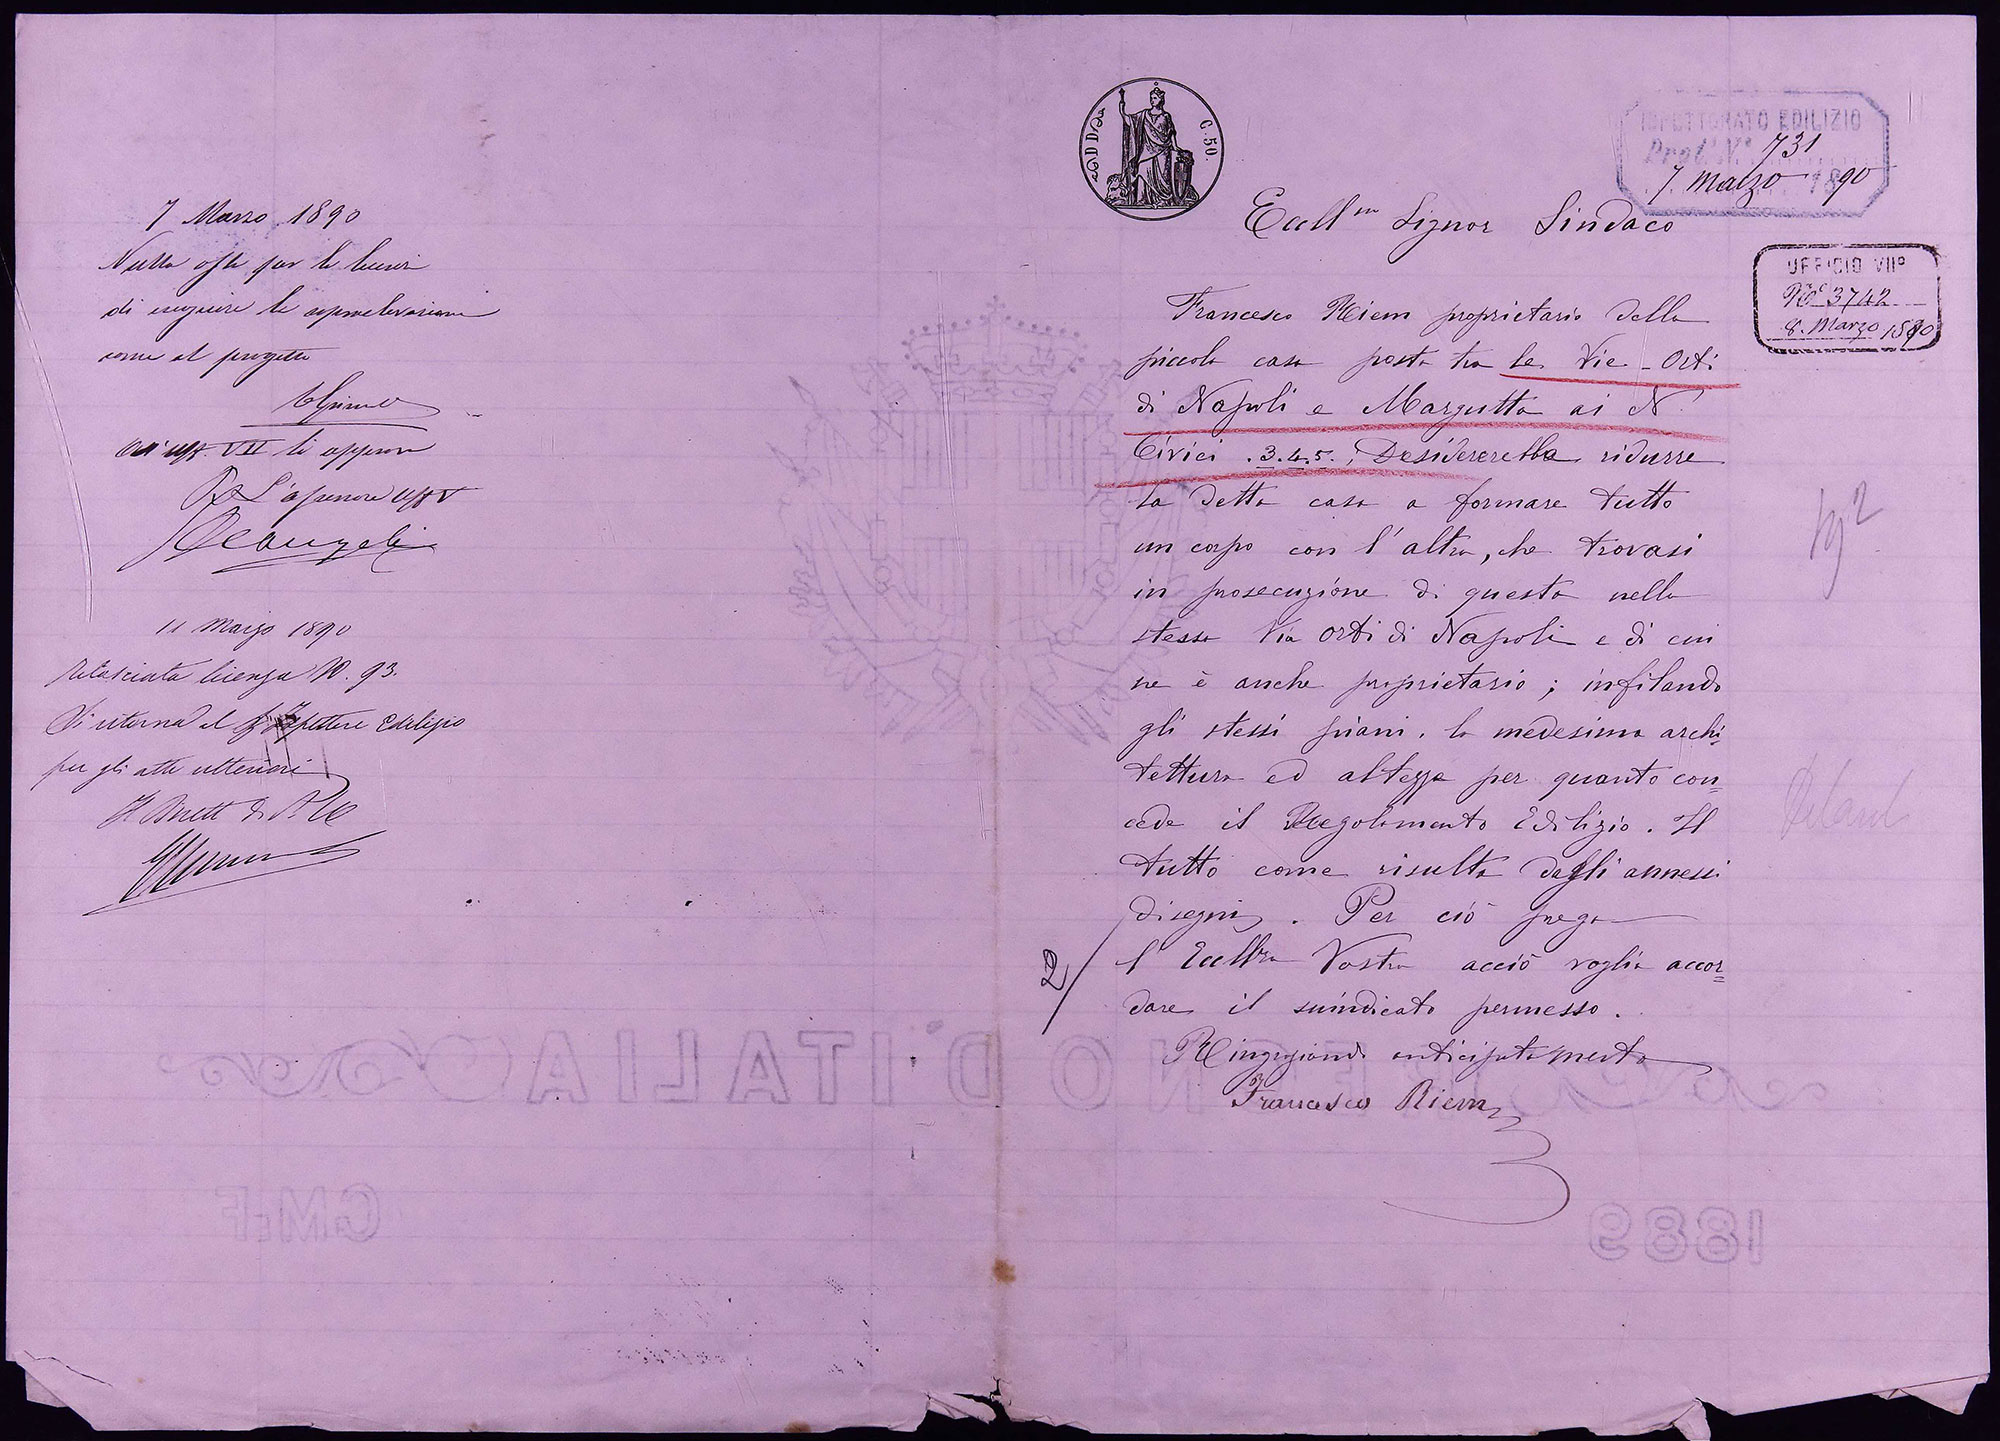 7 Marzo 1890
Nulla osta per la licenza
di eseguire le sopraelevazioni
come al progetto
all'uff. VII si approva
L'assessore Uff V
11 Marzo 1890
rilasciata licenza N. 93.
Si ritorna al Sig Ispettore Edilizio
per gli atti ulteriori
C. 50.
ISPETTORATO EDILIZIO
Prot. N. 731
7 Marzo 1890
Eccllm Signor Sindaco
UFFICIO VIIº
3742
8. Marzo 1890
Francesco Riem proprietario della
piccola casa posta tra le Vie Orti
di Napoli e Margutta ai N.
Civici .3.4.5., Desidererebbe ridurre
la detta casa a formare tutto
un corpo con l'altra, che trovasi
in prosecuzione di questa nella
stessa Via Orti di Napoli e di cui
ne è anche proprietario; infilando
gli stessi piani, la medesima archi=
tettura ed altezza per quanto con=
cede il Regolamento Edilizio. Il
tutto come risulta dagli annessi
disegni. Per ciò prega
l'Ecclza Vostra acciò voglia accor=
dare il suindicato permesso.
2/
Ringraziando anticipatamente
Francesco Riem
REGNO D'ITALIA
1889